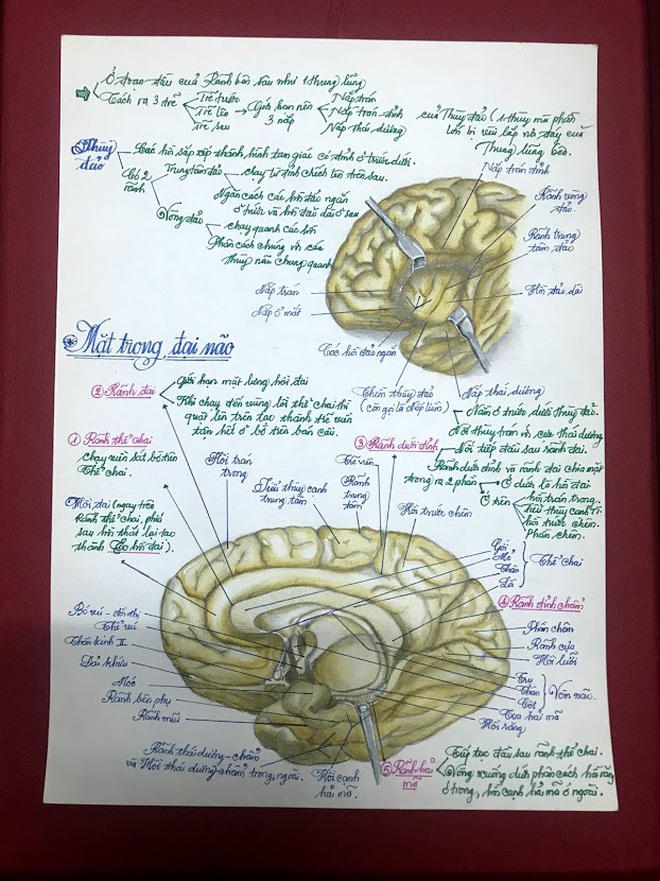 Ở đoạn đầu của Rãnh bên sâu như 1 thung lũng
Tách ra 3 trẽ
Trẽ trước
Trẽ lên
Trẽ sau
Giới hạn nên
3 nắp
Nắp trán
Nắp trán đỉnh
Nắp thái dương
của Thùy đảo (1 thùy mà phần
lớn bị vùi lấp no đáy của
Thung lũng bên.
Thùy
đảo
Các hồi sắp xếp thành hình tam giác có đỉnh ở trước dưới.
Có 2
rãnh
Trung tâm đảo
chạy từ đỉnh chếch lên trên sau.
Ngăn cách các hồi đảo ngắn
ở trước và hồi đảo dài ở sau
Vòng đảo
chạy quanh các hồi
Phân cách chúng với các
thùy não chung quanh
Nắp trán đỉnh
Rãnh vòng
đảo.
Rãnh trung
tâm đảo
Hồi đảo dài
Nắp trán
Nắp ổ mắt
Các hồi đảo ngắn
Thềm thùy đảo
(còn gọi là nếp liềm)
Nắp thái dương
Mặt trong đại não
② Rãnh đai
Giới hạn mặt lưng hồi đai
Khi chạy đến vùng lồi thể chai thì
quặt lên trên tạo thành trẽ viền
tận hết ở bờ trên bán cầu.
① Rãnh thể chai
chạy viền sát bờ trên
Thể chai.
Hồi đai (ngay trên
Rãnh thể chai, phía
sau hồi thắt lại tạo
thành Eo hồi đai).
Hồi trán
trong
Tiểu thùy cạnh
trung tâm
Trẽ viền
Rãnh
trung
tâm
③ Rãnh dưới đỉnh
Nằm ở trước dưới thùy đảo.
Nối thùy trán với cực thái dương
Nối tiếp đầu sau rãnh đai.
Rãnh dưới đỉnh và rãnh đai chia mặt
trong ra 2 phần
Ở dưới là hồi đai
Ở trên
hồi trán trong.
tiểu thùy cạnh TT
hồi trước chêm.
Phần chêm.
Hồi trước chêm
Gối
Mỏ
Thân
Lồi
Thể chai
④ Rãnh đỉnh chẩm
Phần chêm
Rãnh cựa
Hồi lưỡi
Trụ
Thân
Cột
Vòm não.
Tua hải mã
Hồi răng
Bó vú - đồi thị
Thể vú
Thần kinh II
Dải khứu
Móc
Rãnh bên phụ
Rãnh mũi
Rãnh thái dương-chẩm
và Hồi thái dương-chẩm trong, ngoài.
Hồi cạnh
hải mã.
⑤ Rãnh hải
mã
Tiếp tục đầu sau rãnh thể chai.
Vòng xuống dưới phân cách hồi răng
ở trong, hồi cạnh hải mã ở ngoài.